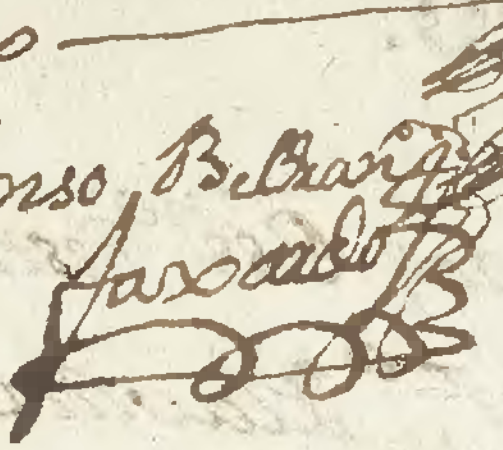 onso Beltran
faxardo